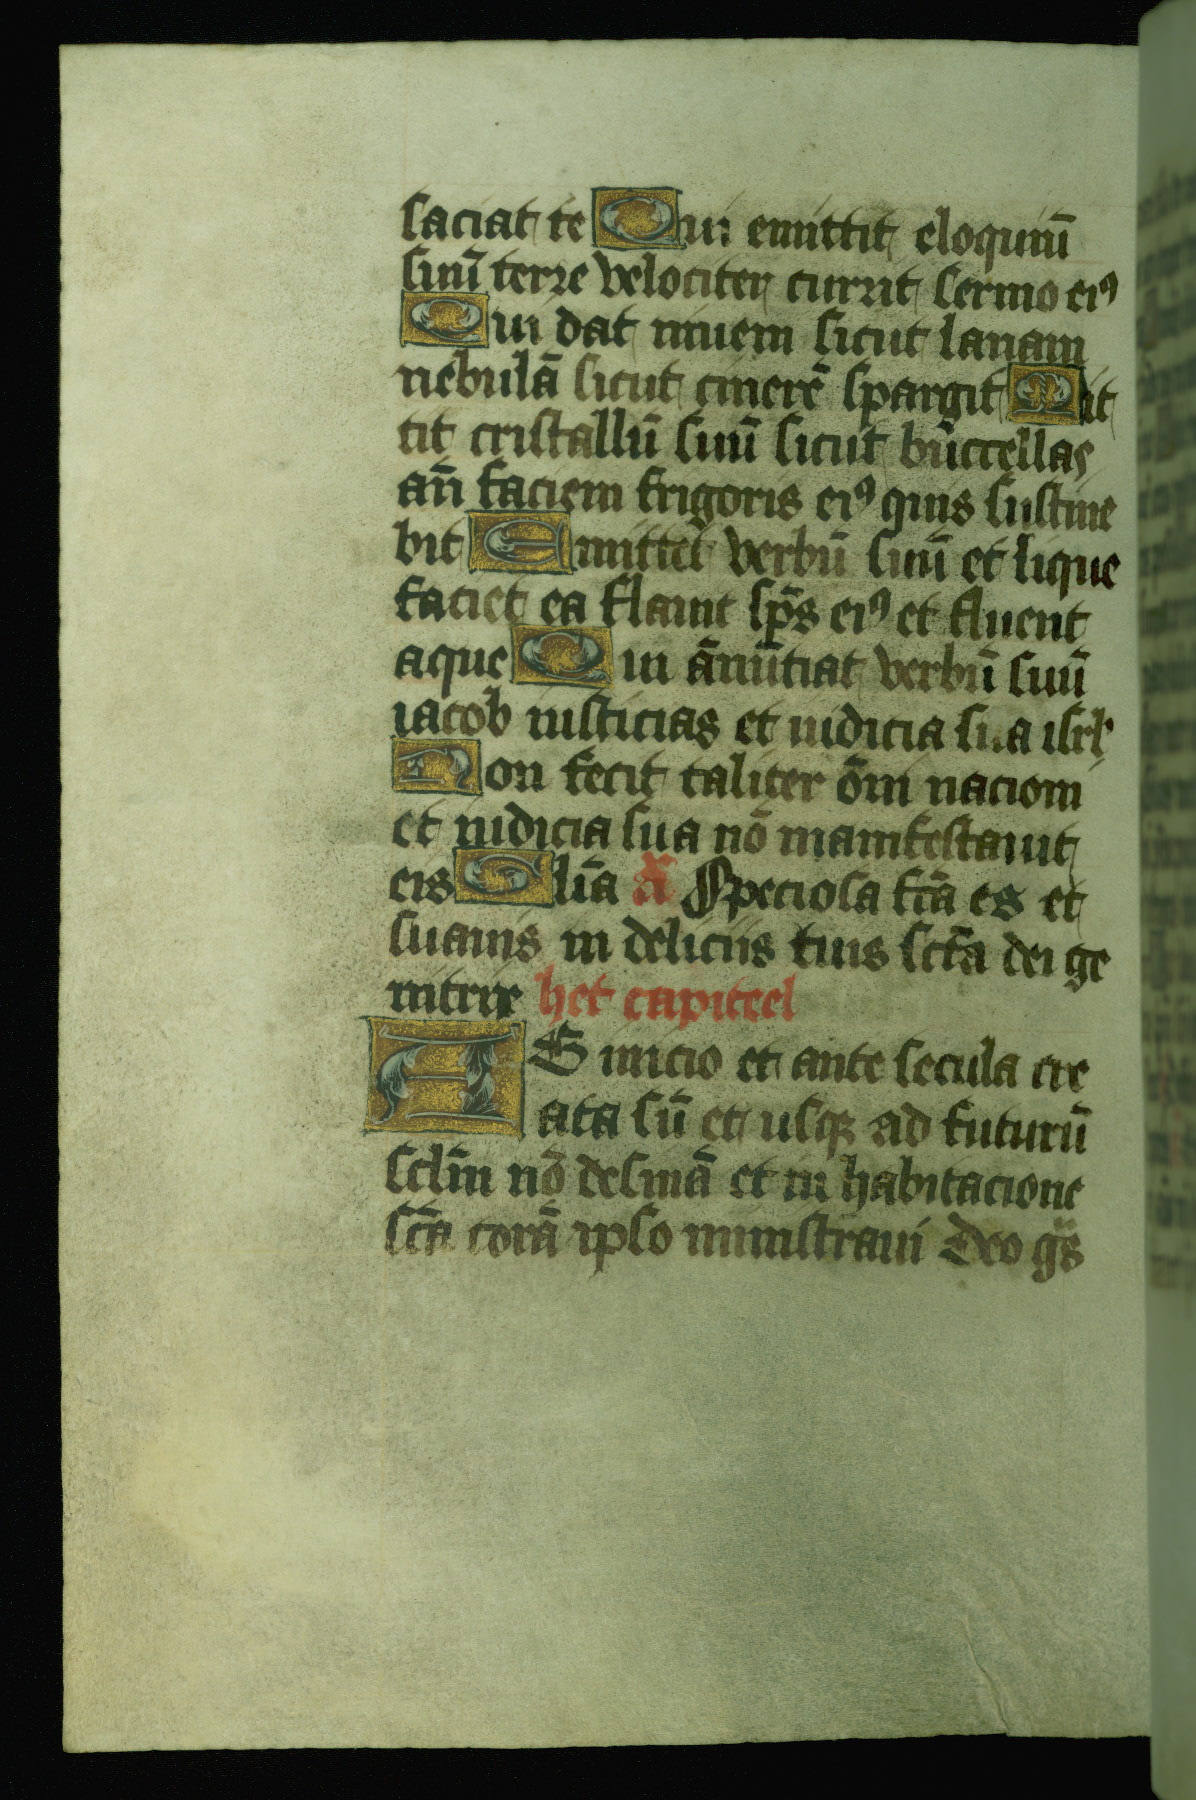 saciat te Qui emittit eloquiū
suū terre velociter currit sermo eiꝰ
Qui dat niuem sicut lanam
nebulā sicut cinerē spargit Mit
tit cristallū suū sicut buccellas
an̄ faciem frigoris eiꝰ quis sustine
bit Emittet verbū suū et lique
faciet ea flauit sp̄s eiꝰ et fluent
aque Qui ānūtiat verbū suū
iacob iusticias et iudicia sua isrl
Non fecit taliter ōni nacioni
et iudicia sua nō manifestauit
eis Glīa Speciosa fc̄a es et
suauis in deliciis tuis sct̄a dei ge
nitrix het capiteel
AB inicio et ante secula cre
ata sū et usqꝫ ad futurū
sclm̄ nō desinā et in habitacione
sc̄a corā ipso ministraui Deo gs̄